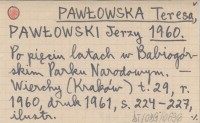 PAWŁOWSKA Teresa,
PAWŁOWSKI Jerzy 1960.
Po pięciu latach w Babiogór-
skim Parku Narodowym. —
Wierchy (Kraków) t. 29, r.
1960, druk 1961, s. 224-227,
ilustr.